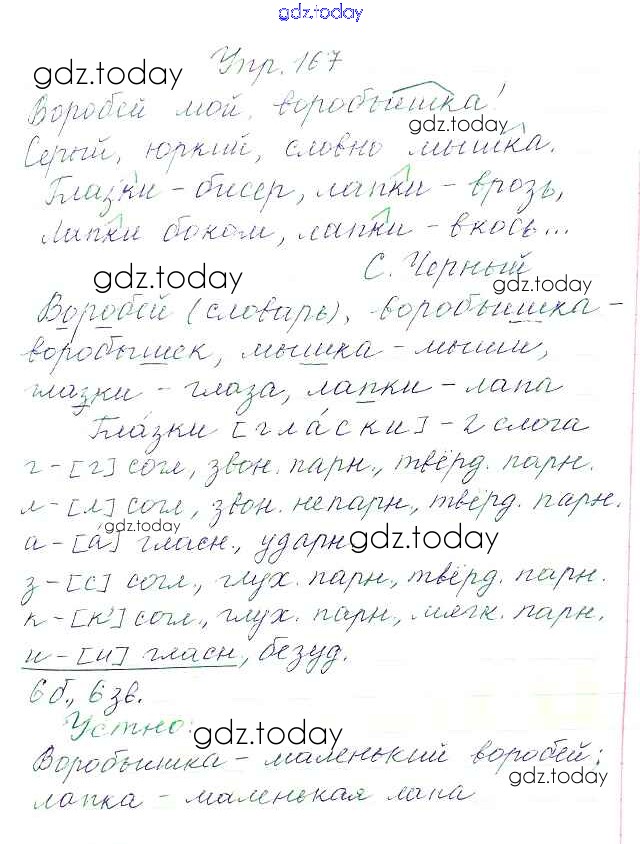 gdz.today
Упр. 167
gdz.today
Воробей мой, воробьишка!
gdz.today
Серый, юркий, словно мышка.
Глазки – бисер, лапки – врозь,
Лапки боком, лапки – вкось...
С. Черный
gdz.today
gdz.today
Воробей (словарь), воробьишка –
воробьишек, мышка – мыши,
глазки – глаза, лапки – лапа
Глázки [глáски] – 2 слога
г – [г] согл, звон. парн., твёрд. парн.
л – [л] согл, звон. непарн, твёрд. парн.
gdz.today
а – [á] гласн., ударн
gdz.today
з – [с] согл, глух. парн, твёрд. парн.
к – [к'] согл, глух. парн, мягк. парн.
и – [и] гласн, безуд.
6 б., 6 зв.
Устно:
gdz.today
Воробьишка – маленький воробей;
gdz.today
лапка – маленькая лапа